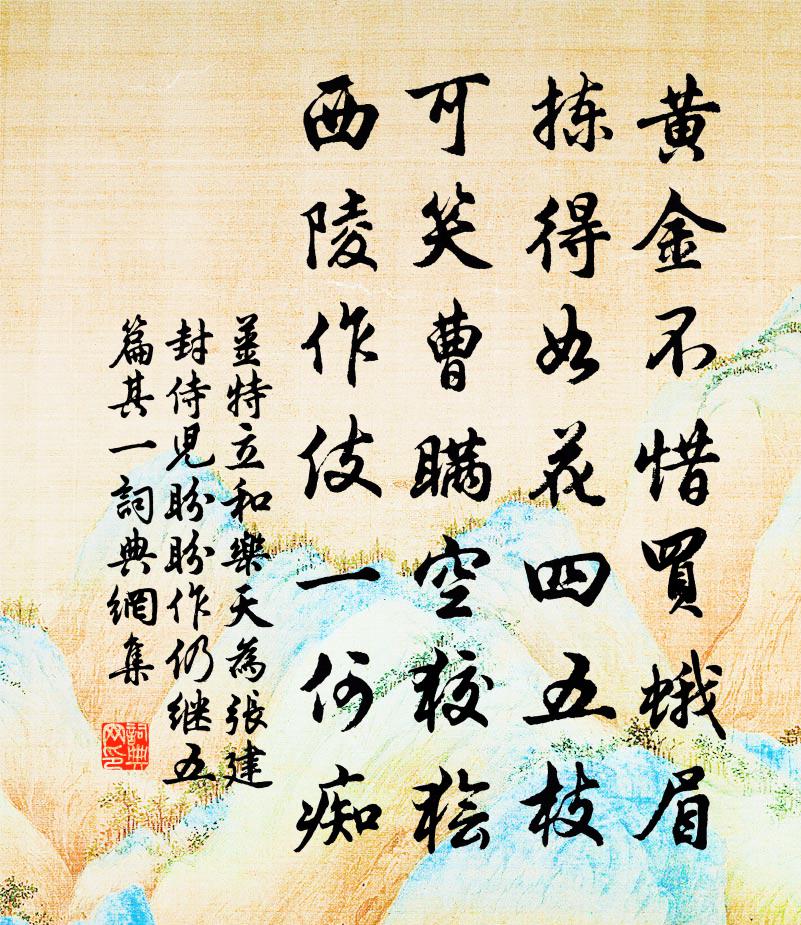 黄金不惜買蛾眉
揀得如花四五枝
可笑曹瞞空狡獪
西陵作伎一何痴
薑特立和樂天為張建
封侍児盼盼作仍继五
篇其一詞典網集
詞典
网印